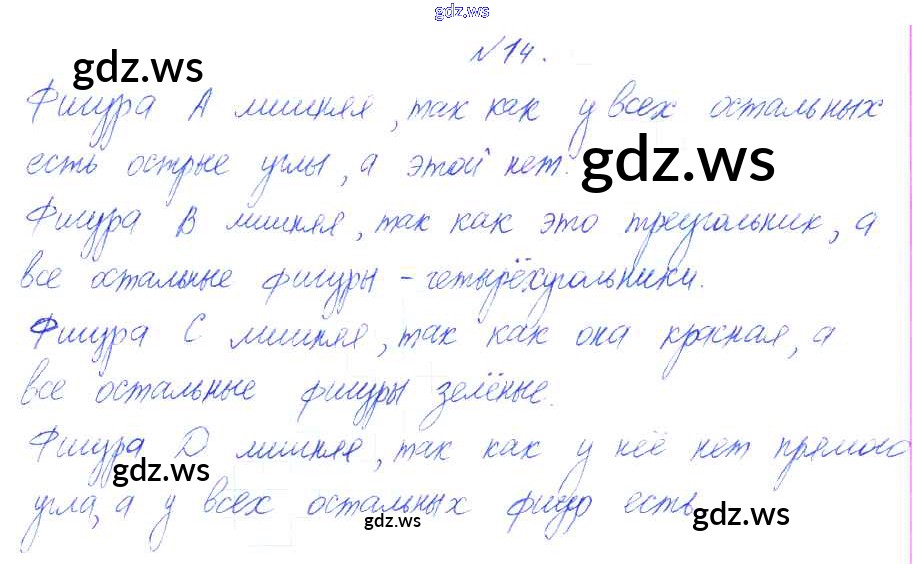 gdz.ws
№14.
gdz.ws
Фигура A лишняя, так как у всех остальных
есть острые углы, а этой нет.
gdz.ws
Фигура B лишняя, так как это треугольник, а
все остальные фигуры - четырёхугольники.
Фигура C лишняя, так как она красная, а
все остальные фигуры зелёные.
Фигура D лишняя, так как у неё нет прямого
gdz.ws
угла, а у всех остальных фигур есть
gdz.ws
gdz.ws